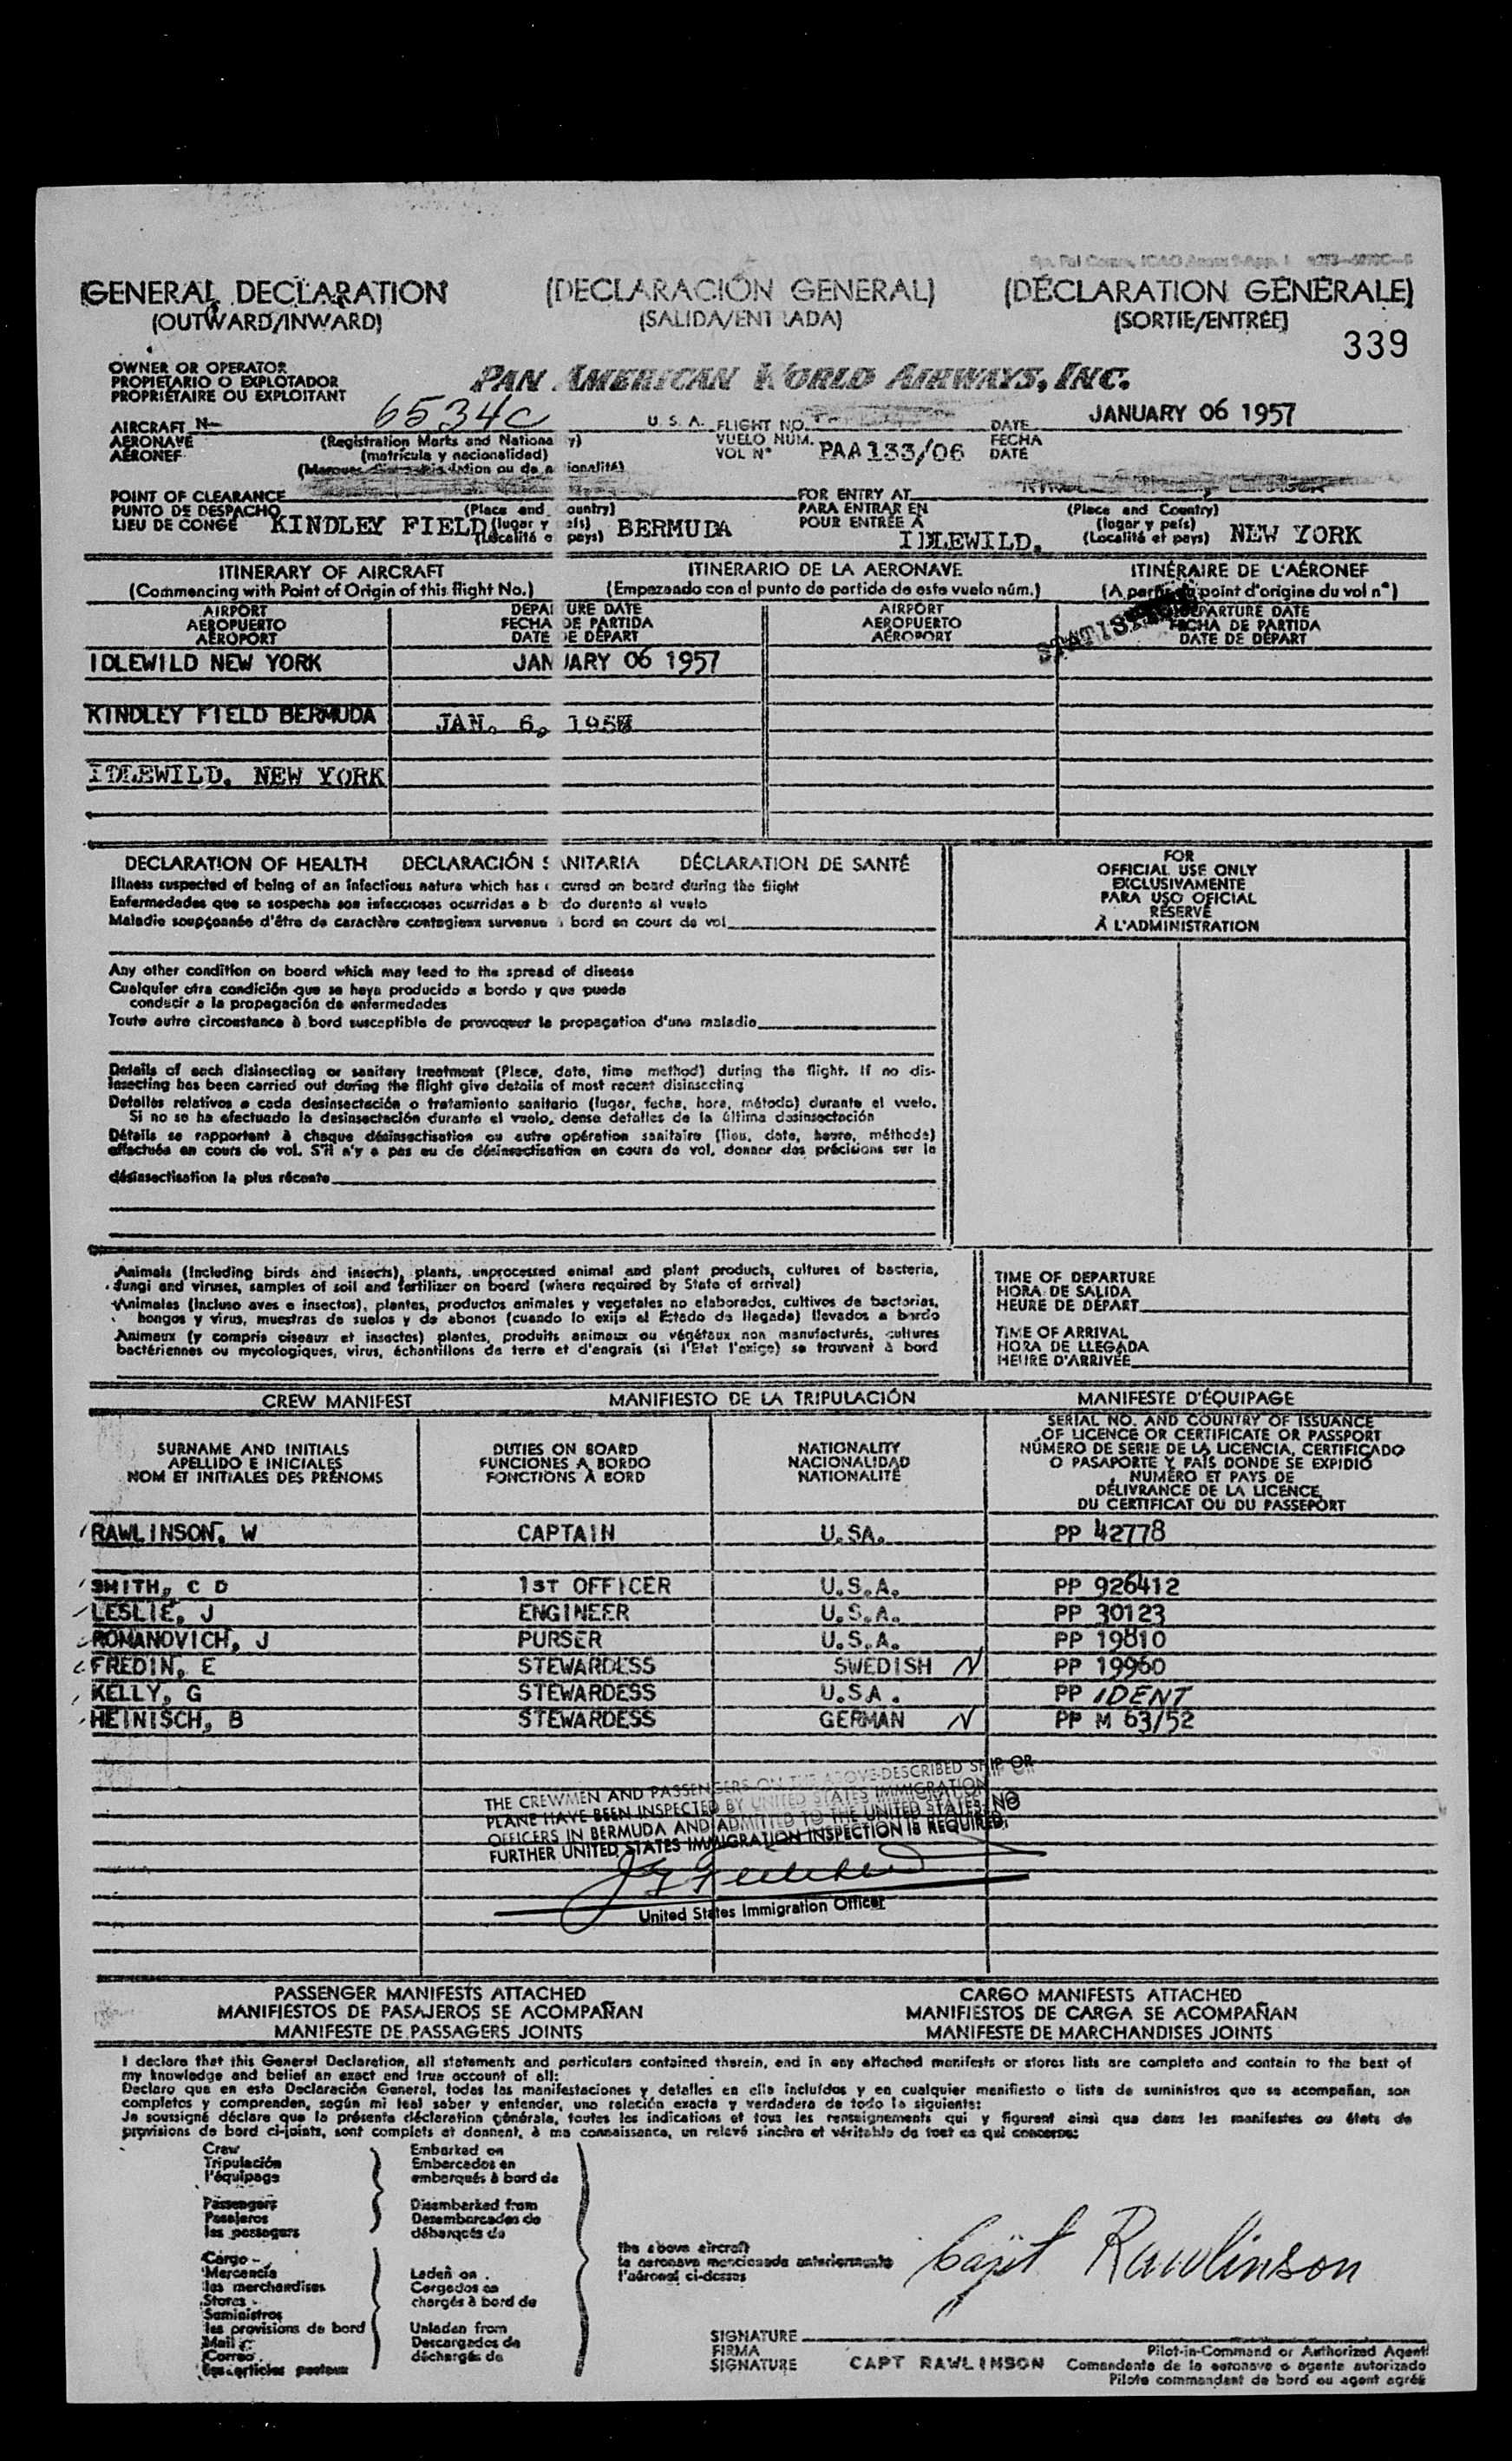 GENERAL DECLARATION (DECLARACIÓN GENERAL) (DÉCLARATION GÉNÉRALE)
(OUTWARD/INWARD) (SALIDA/ENT ADA) (SORTIE/ENTRÉE)
339
OWNER OR OPERATOR
PROPIETARIO O EXPLOTADOR
PROPRIÉTAIRE OU EXPLOITANT
PAN AMERICAN WORLD AIRWAYS, INC.
AIRCRAFT N- 6534C U. S. A. FLIGHT NO. DATE JANUARY 06 1957
AERONAVE (Registration Marks and Nationa y) VUELO NÚM. PAA133/06 FECHA
AÉRONEF (matrícula y nacionalidad) VOL N° DATE
POINT OF CLEARANCE FOR ENTRY AT
PUNTO DE DESPACHO (Place and ountry) PARA ENTRAR EN (Place and Country)
LIEU DE CONGÉ KINDLEY FIELD (lugar y aís) BERMUDA POUR ENTRÉE A IDLEWILD. (lugar y país) NEW YORK
(Localité e pays) (Localité et pays)
ITINERARY OF AIRCRAFT ITINERARIO DE LA AERONAVE ITINÉRAIRE DE L'AÉRONEF
(Commencing with Point of Origin of this flight No.) (Empezando con el punto de partida de este vuelo núm.) (A partir du point d'origine du vol n°)
AIRPORT DEPA TURE DATE AIRPORT DEPARTURE DATE
AEROPUERTO FECHA DE PARTIDA AEROPUERTO FECHA DE PARTIDA
AÉROPORT DATE DE DÉPART AÉROPORT DATE DE DÉPART
IDLEWILD NEW YORK JAN UARY 06 1957
KINDLEY FIELD BERMUDA JAN. 6, 1957
IDLEWILD. NEW YORK
DECLARATION OF HEALTH DECLARACIÓN S ANITARIA DÉCLARATION DE SANTÉ
Illness suspected of being of an infectious nature which has o cured on board during the flight
Enfermedades que se sospecha son infecciosas ocurridas a b rdo durante el vuelo
Maladie soupçonnée d'être de caractère contagieux survenue à bord en cours de vol
Any other condition on board which may lead to the spread of disease
Cualquier otra condición que se haya producido a bordo y que pueda
conducir a la propagación de enfermedades
Toute autre circonstance à bord susceptible de provoquer la propagation d'une maladie
Details of each disinsecting or sanitary treatment (Place, date, time method) during the flight. If no dis-
insecting has been carried out during the flight give details of most recent disinsecting
Detalles relativos a cada desinsectación o tratamiento sanitario (lugar, fecha, hora, método) durante el vuelo.
Si no se ha efectuado la desinsectación durante el vuelo, dense detalles de la última desinsectación
Détails se rapportant à chaque désinsectisation ou autre opération sanitaire (lieu, date, heure, méthode)
effectués en cours de vol. S'il n'y a pas eu de désinsectisation en cours de vol, donner des précisions sur la
désinsectisation la plus récente
FOR
OFFICIAL USE ONLY
EXCLUSIVAMENTE
PARA USO OFICIAL
RÉSERVÉ
À L'ADMINISTRATION
Animals (Including birds and insects), plants, unprocessed animal and plant products, cultures of bacteria,
fungi and viruses, samples of soil and fertilizer on board (where required by State of arrival)
Animales (Incluso aves e insectos), plantas, productos animales y vegetales no elaborados, cultivos de bacterias,
hongos y virus, muestras de suelos y de abonos (cuando lo exija el Estado de llegada) llevados a bordo
Animaux (y compris oiseaux et insectes) plantes, produits animaux ou végétaux non manufacturés, cultures
bactériennes ou mycologiques, virus, échantillons de terre et d'engrais (si l'Etat l'exige) se trouvant à bord
TIME OF DEPARTURE
HORA DE SALIDA
HEURE DE DÉPART
TIME OF ARRIVAL
HORA DE LLEGADA
HEURE D'ARRIVÉE
CREW MANIFEST MANIFIESTO DE LA TRIPULACIÓN MANIFESTE D'ÉQUIPAGE
SURNAME AND INITIALS DUTIES ON BOARD NATIONALITY
APELLIDO E INICIALES FUNCIONES A BORDO NACIONALIDAD
NOM ET INITIALES DES PRÉNOMS FONCTIONS À BORD NATIONALITÉ
SERIAL NO. AND COUNTRY OF ISSUANCE
OF LICENCE OR CERTIFICATE OR PASSPORT
NÚMERO DE SERIE DE LA LICENCIA, CERTIFICADO
O PASAPORTE Y PAÍS DONDE SE EXPIDIÓ
NUMÉRO ET PAYS DE
DÉLIVRANCE DE LA LICENCE
DU CERTIFICAT OU DU PASSEPORT
RAWLINSON, W CAPTAIN U.SA. PP 42778
SMITH, C D 1ST OFFICER U.S.A. PP 926412
LESLIE, J ENGINEER U.S.A. PP 30123
ROMANOVICH, J PURSER U.S.A. PP 19810
FREDIN, E STEWARDESS SWEDISH N PP 19960
KELLY, G STEWARDESS U.S.A. PP IDENT
HEINISCH, B STEWARDESS GERMAN N PP M 63/52
THE CREWMEN AND PASSENGERS ON THE ABOVE-DESCRIBED SHIP OR
PLANE HAVE BEEN INSPECTED BY UNITED STATES IMMIGRATION
OFFICERS IN BERMUDA AND ADMITTED TO THE UNITED STATES. NO
FURTHER UNITED STATES IMMIGRATION INSPECTION IS REQUIRED.
United States Immigration Officer
PASSENGER MANIFESTS ATTACHED CARGO MANIFESTS ATTACHED
MANIFIESTOS DE PASAJEROS SE ACOMPAÑAN MANIFIESTOS DE CARGA SE ACOMPAÑAN
MANIFESTE DE PASSAGERS JOINTS MANIFESTE DE MARCHANDISES JOINTS
I declare that this General Declaration, all statements and particulars contained therein, and in any attached manifests or stores lists are complete and contain to the best of
my knowledge and belief an exact and true account of all:
Declaro que en esta Declaración General, todas las manifestaciones y detalles en ella incluídos y en cualquier manifiesto o lista de suministros que se acompañan, son
completos y comprenden, según mi leal saber y entender, una relación exacta y verdadera de todo lo siguiente:
Je soussigné déclare que la présente déclaration générale, toutes les indications et tous les renseignements qui y figurent ainsi que dans les manifestes ou états de
provisions de bord ci-joints, sont complets et donnent, à ma connaissance, un relevé sincère et véritable de tout ce qui concerne:
Crew Embarked on
Tripulación Embarcados en
l'équipage embarqués à bord de
Passengers Disembarked from
Pasajeros Desembarcados de
les passagers débarqués de
the above aircraft
la aeronave mencionada anteriormente
l'aéronef ci-dessus
Capt Rawlinson
Cargo Laden on
Mercancía Cargados en
les marchandises chargés à bord de
Stores
Suministros
les provisions de bord Unladen from
Mail Descargados de
Correo déchargés de
les articles postaux
SIGNATURE Pilot-in-Command or Authorized Agent
FIRMA CAPT RAWLINSON Comandante de la aeronave o agente autorizado
SIGNATURE Pilote commandant de bord ou agent agréé